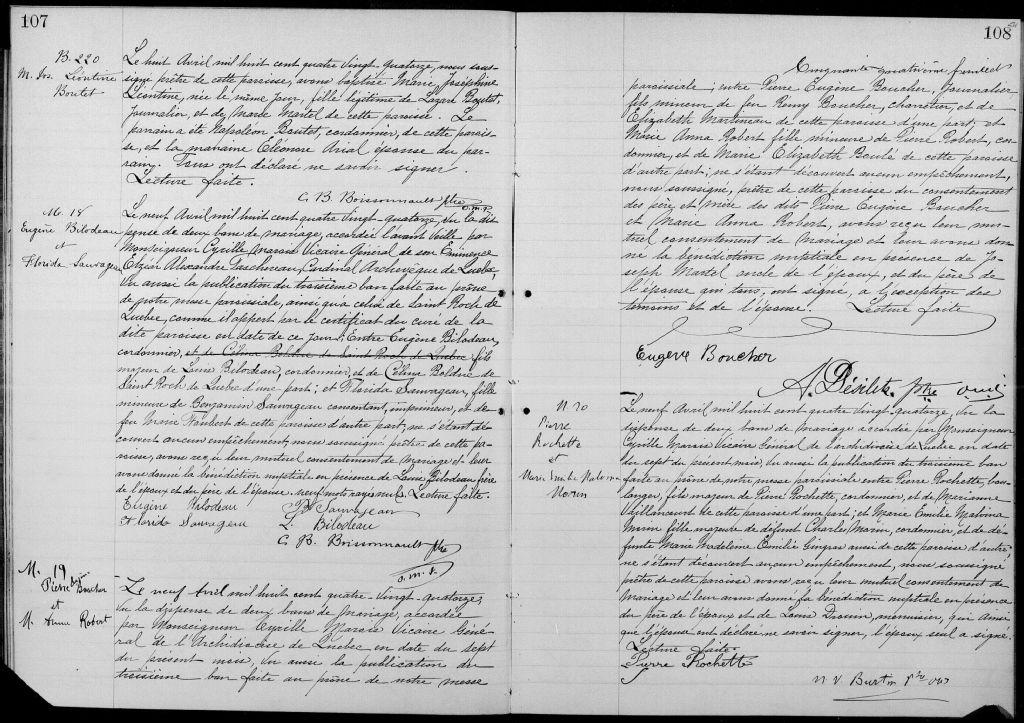 107
B. 220
M. Jos. Léontine
Boutet
Le huit Avril mil huit cent quatre vingt-quatorze, nous sous-
signé prêtre de cette paroisse, avons baptisé Marie, Joséphine
Léontine, née le même jour, fille légitime de Lazare Boutet,
journalier, et de Marie Martel de cette paroisse. Le
parrain a été Napoléon Boutet, cordonnier, de cette parois-
se, et la marraine Eléonore Arial épouse du par-
rain. Tous ont déclaré ne savoir signer.
Lecture faite.
C. B. Boissonnault ptre
o.m.i.
M. 18
Eugène Bilodeau
et
Florida Sauvageau
Le neuf Avril mil huit cent quatre vingt-quatorze, vu la dis-
pense de deux bans de mariage, accordée l'avant veille par
Monseigneur Cyrille Marois Vicaire Général de son Eminence
Elzéar Alexandre Taschereau, Cardinal Archevêque de Québec,
vu aussi la publication du troisième ban faite au prône
de notre messe paroissiale, ainsi qu'à celui de Saint Roch de
Québec, comme il appert par le certificat du curé de la
dite paroisse en date de ce jour; Entre Eugène Bilodeau,
cordonnier, et de Célina Bolduc de Saint Roch de Québec fils
majeur de Louis Bilodeau, cordonnier, et de Célina Bolduc de
Saint Roch de Québec d'une part; et Florida Sauvageau, fille
mineure de Benjamin Sauvageau consentant, imprimeur, et de
feu Marie Flaubert de cette paroisse d'autre part, ne s'étant dé-
couvert aucun empêchement, nous soussigné prêtre de cette pa-
roisse, avons reçu leur mutuel consentement de mariage et leur
avons donné la bénédiction nuptiale en présence de Louis Bilodeau frère
de l'époux et du père de l'épouse. neuf mots rayés nuls. Lecture faite.
Eugène Bilodeau
Sauvageau
Florida Sauvageau
L. Bilodeau
C. B. Boissonnault ptre
o.m.i.
M. 19
Pierre Eug. Boucher
et
M. Anne Robert
Le neuf Avril mil huit cent quatre-vingt-quatorze,
vu la dispense de deux bans de mariage, accordée
par Monseigneur Cyrille Marois Vicaire Géné-
ral de l'Archidiocèse de Québec en date du sept
du présent mois, vu aussi la publication du
troisième ban faite au prône de notre messe
108
Cinquante quatrième feuillet
paroissiale; entre Pierre Eugène Boucher, journalier
fils mineur de feu Remy Boucher, charretier, et de
Elizabeth Martineau de cette paroisse d'une part, et
Marie Anna Robert fille mineure de Pierre Robert, cor-
donnier, et de Marie Elizabeth Boulé de cette paroisse
d'autre part; ne s'étant découvert aucun empêchement,
nous soussigné, prêtre de cette paroisse du consentement
des père et mère des dits Pierre Eugène Boucher
et Marie Anna Robert, avons reçu leur mu-
tuel consentement de mariage et leur avons don-
né la bénédiction nuptiale en présence de Jo-
seph Martel oncle de l'époux, et du père de
l'épouse qui tous, ont signé, à l'exception des
témoins et de l'épouse. Lecture faite
Eugène Boucher
A. Désilets ptre o.m.i.
M 20
Pierre
Rochette
et
Marie Emilie Malvina
Morin
Le neuf Avril mil huit cent quatre vingt-quatorze, vu la
dispense de deux bans de mariage accordée par Monseigneur
Cyrille Marois Vicaire Général de l'archidiocèse de Québec en date
du sept du présent mois; vu aussi la publication du troisième ban
faite au prône de notre messe paroissiale entre Pierre Rochette, bou-
langer, fils majeur de Pierre Rochette, cordonnier, et de Marianne
Vaillancourt de cette paroisse d'une part; et Marie Emilie Malvina
Morin fille majeure de défunt Charles Morin, cordonnier et de dé-
funte Marie Madeleine Emilie Gingras aussi de cette paroisse d'autre,
ne s'étant découvert aucun empêchement, nous soussigné
prêtre de cette paroisse avons reçu leur mutuel consentement de
Mariage et leur avons donné la bénédiction nuptiale en présence
du père de l'époux et de Louis Drouin, menuisier, qui ainsi
que l'épouse ont déclaré ne savoir signer, l'époux seul a signé.
Lecture faite
Pierre Rochette
ptre omi